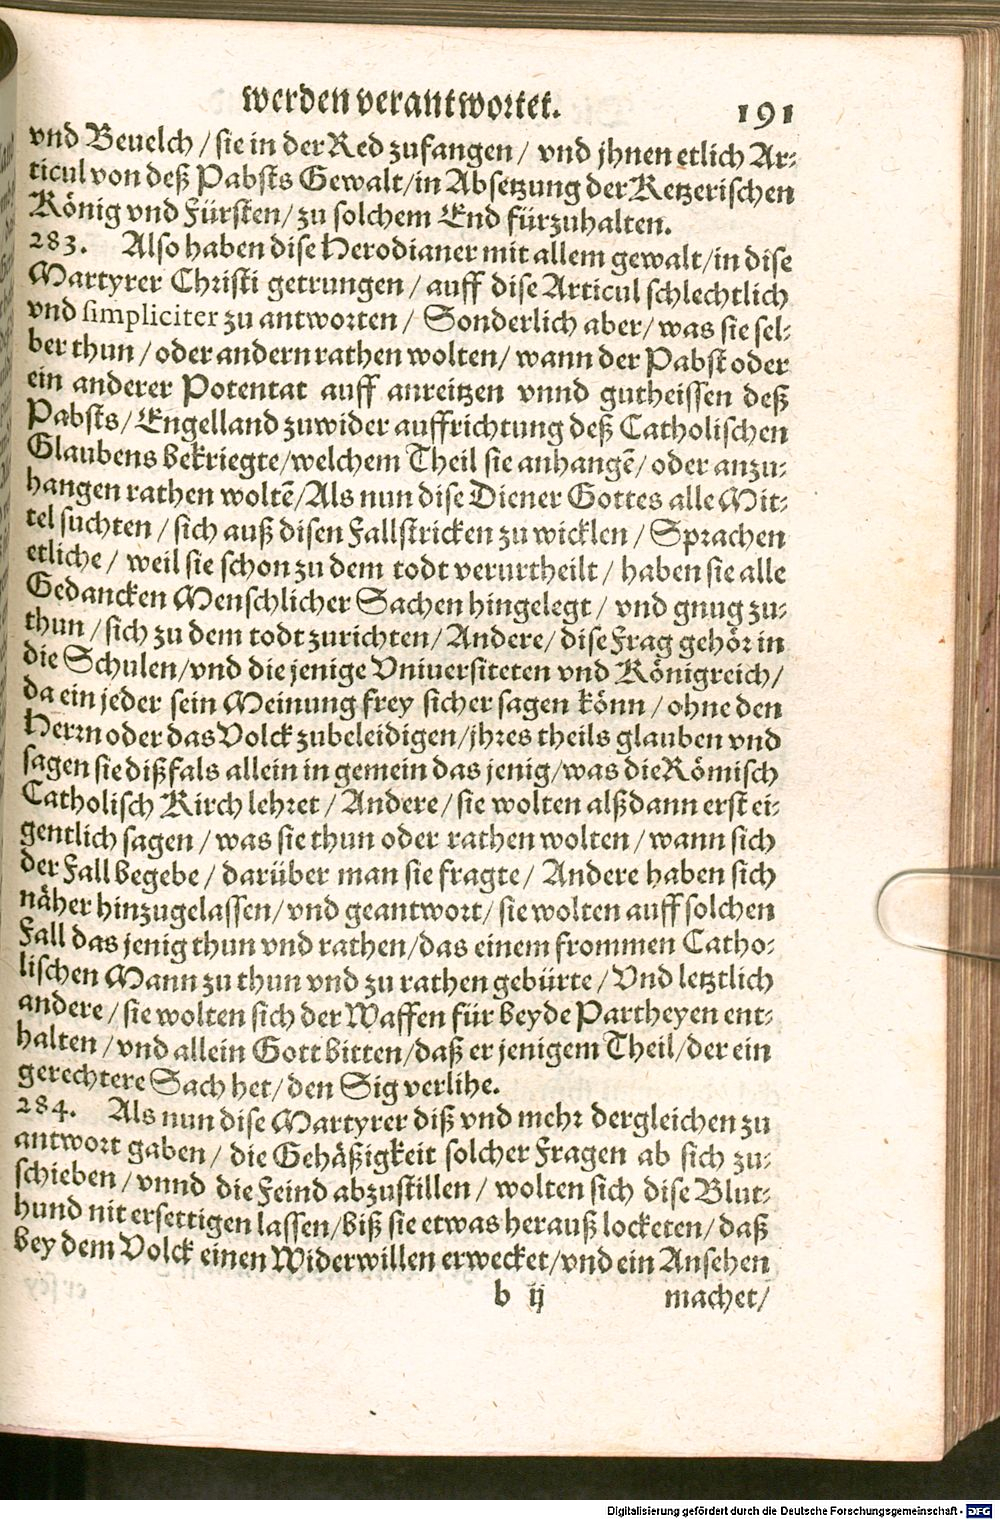 werden verantwortet. 191
vnd Beuelch / sie in der Red zufangen / vnd jhnen etlich Ar-
ticul von deß Pabsts Gewalt / in Absetzung der Ketzerischen
König vnd Fürsten / zu solchem End fürzuhalten.
283. Also haben dise Herodianer mit allem gewalt / in dise
Martyrer Christi getrungen / auff dise Articul schlechtlich
vnd simpliciter zu antworten / Sonderlich aber / was sie sel-
ber thun / oder andern rathen wolten / wann der Pabst oder
ein anderer Potentat auff anreitzen vnnd gutheissen deß
Pabsts / Engelland zuwider auffrichtung deß Catholischen
Glaubens bekriegte / welchem Theil sie anhangẽ / oder anzu-
hangen rathen woltẽ / Als nun dise Diener Gottes alle Mit-
tel suchten / sich auß disen Fallstricken zu wicklen / Sprachen
etliche / weil sie schon zu dem todt verurtheilt / haben sie alle
Gedancken Menschlicher Sachen hingelegt / vnd gnug zu-
thun / sich zu dem todt zurichten / Andere / dise Frag gehör in
die Schulen / vnd die jenige Vniuersiteten vnd Königreich /
da ein jeder sein Meinung frey sicher sagen könn / ohne den
Herrn oder das Volck zubeleidigen / jhres theils glauben vnd
sagen sie dißfals allein in gemein das jenig / was die Römisch
Catholisch Kirch lehret / Andere / sie wolten alßdann erst ei-
gentlich sagen / was sie thun oder rathen wolten / wann sich
der Fall begebe / darüber man sie fragte / Andere haben sich
näher hinzugelassen / vnd geantwort / sie wolten auff solchen
Fall das jenig thun vnd rathen / das einem frommen Catho-
lischen Mann zu thun vnd zu rathen gebürte / Vnd letztlich
andere / sie wolten sich der Waffen für beyde Partheyen ent-
halten / vnd allein Gott bitten / daß er jenigem Theil / der ein
gerechtere Sach het / den Sig verlihe.
284. Als nun dise Martyrer diß vnd mehr dergleichen zu
antwort gaben / die Gehäßigkeit solcher Fragen ab sich zu-
schieben / vnnd die Feind abzustillen / wolten sich dise Blut-
hund nit ersettigen lassen / biß sie etwas herauß locketen / daß
bey dem Volck einen Widerwillen erwecket / vnd ein Ansehen
b ij machet /
Digitalisierung gefördert durch die Deutsche Forschungsgemeinschaft - DFG